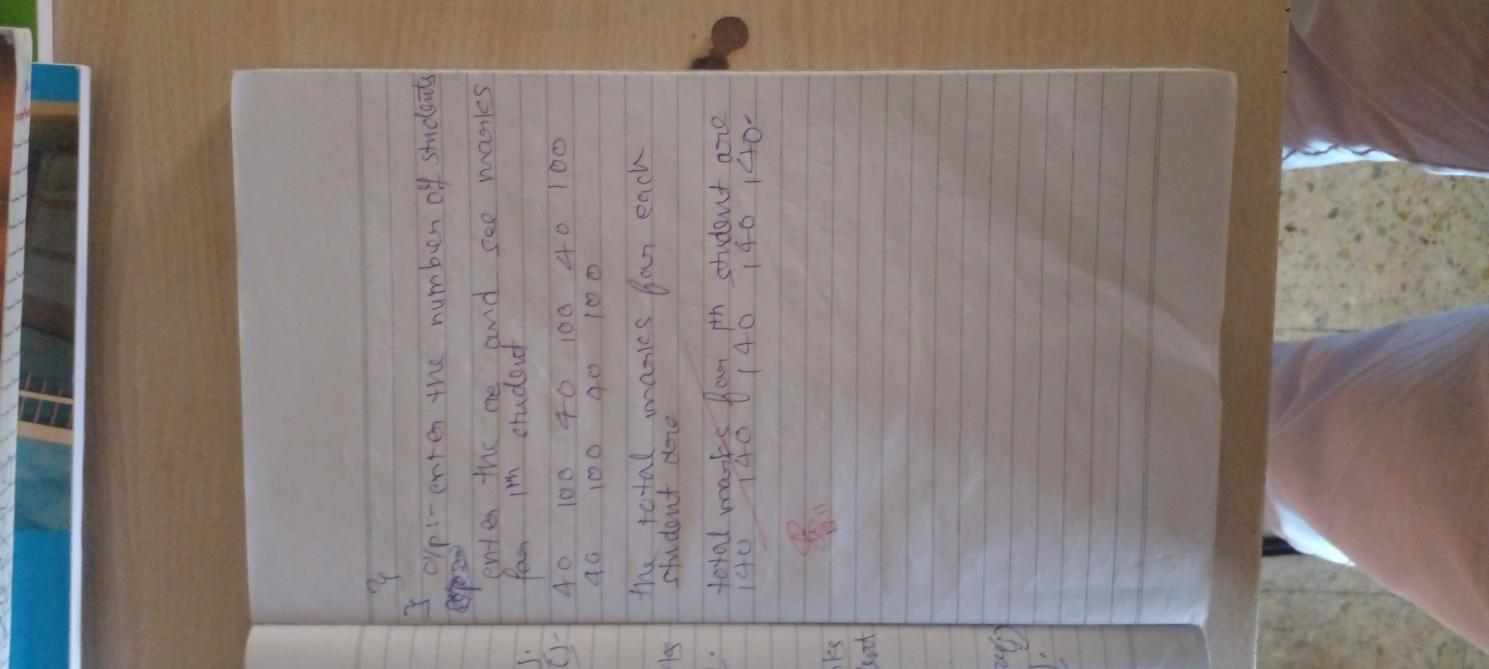 }
}
o/p:- enter the number of students
enter the me and see marks
for 1th student
40 100 40 100 40 100
40 100 40 100
the total marks for each
student are
total marks for 1th student are
140 140 140 140 140.